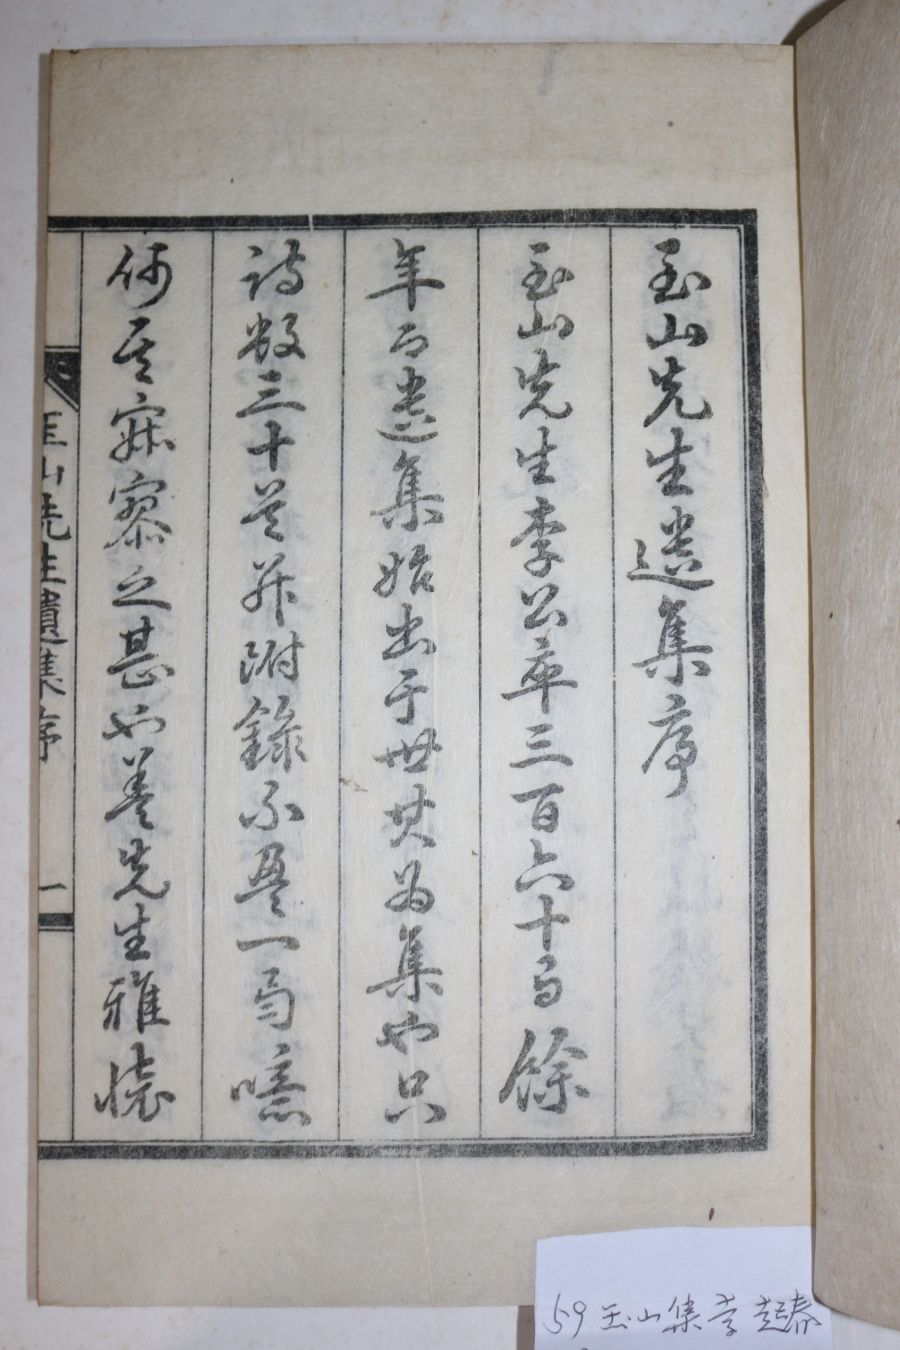 玉山先生遺集序
玉山先生李公卒三百六十有餘
年而遺集始出于世其爲集也只
詩數三十首并附錄不盈一局噫
何其寂寥之甚也盖先生雅懷
玉山先生遺集序
一
59 玉山集 李